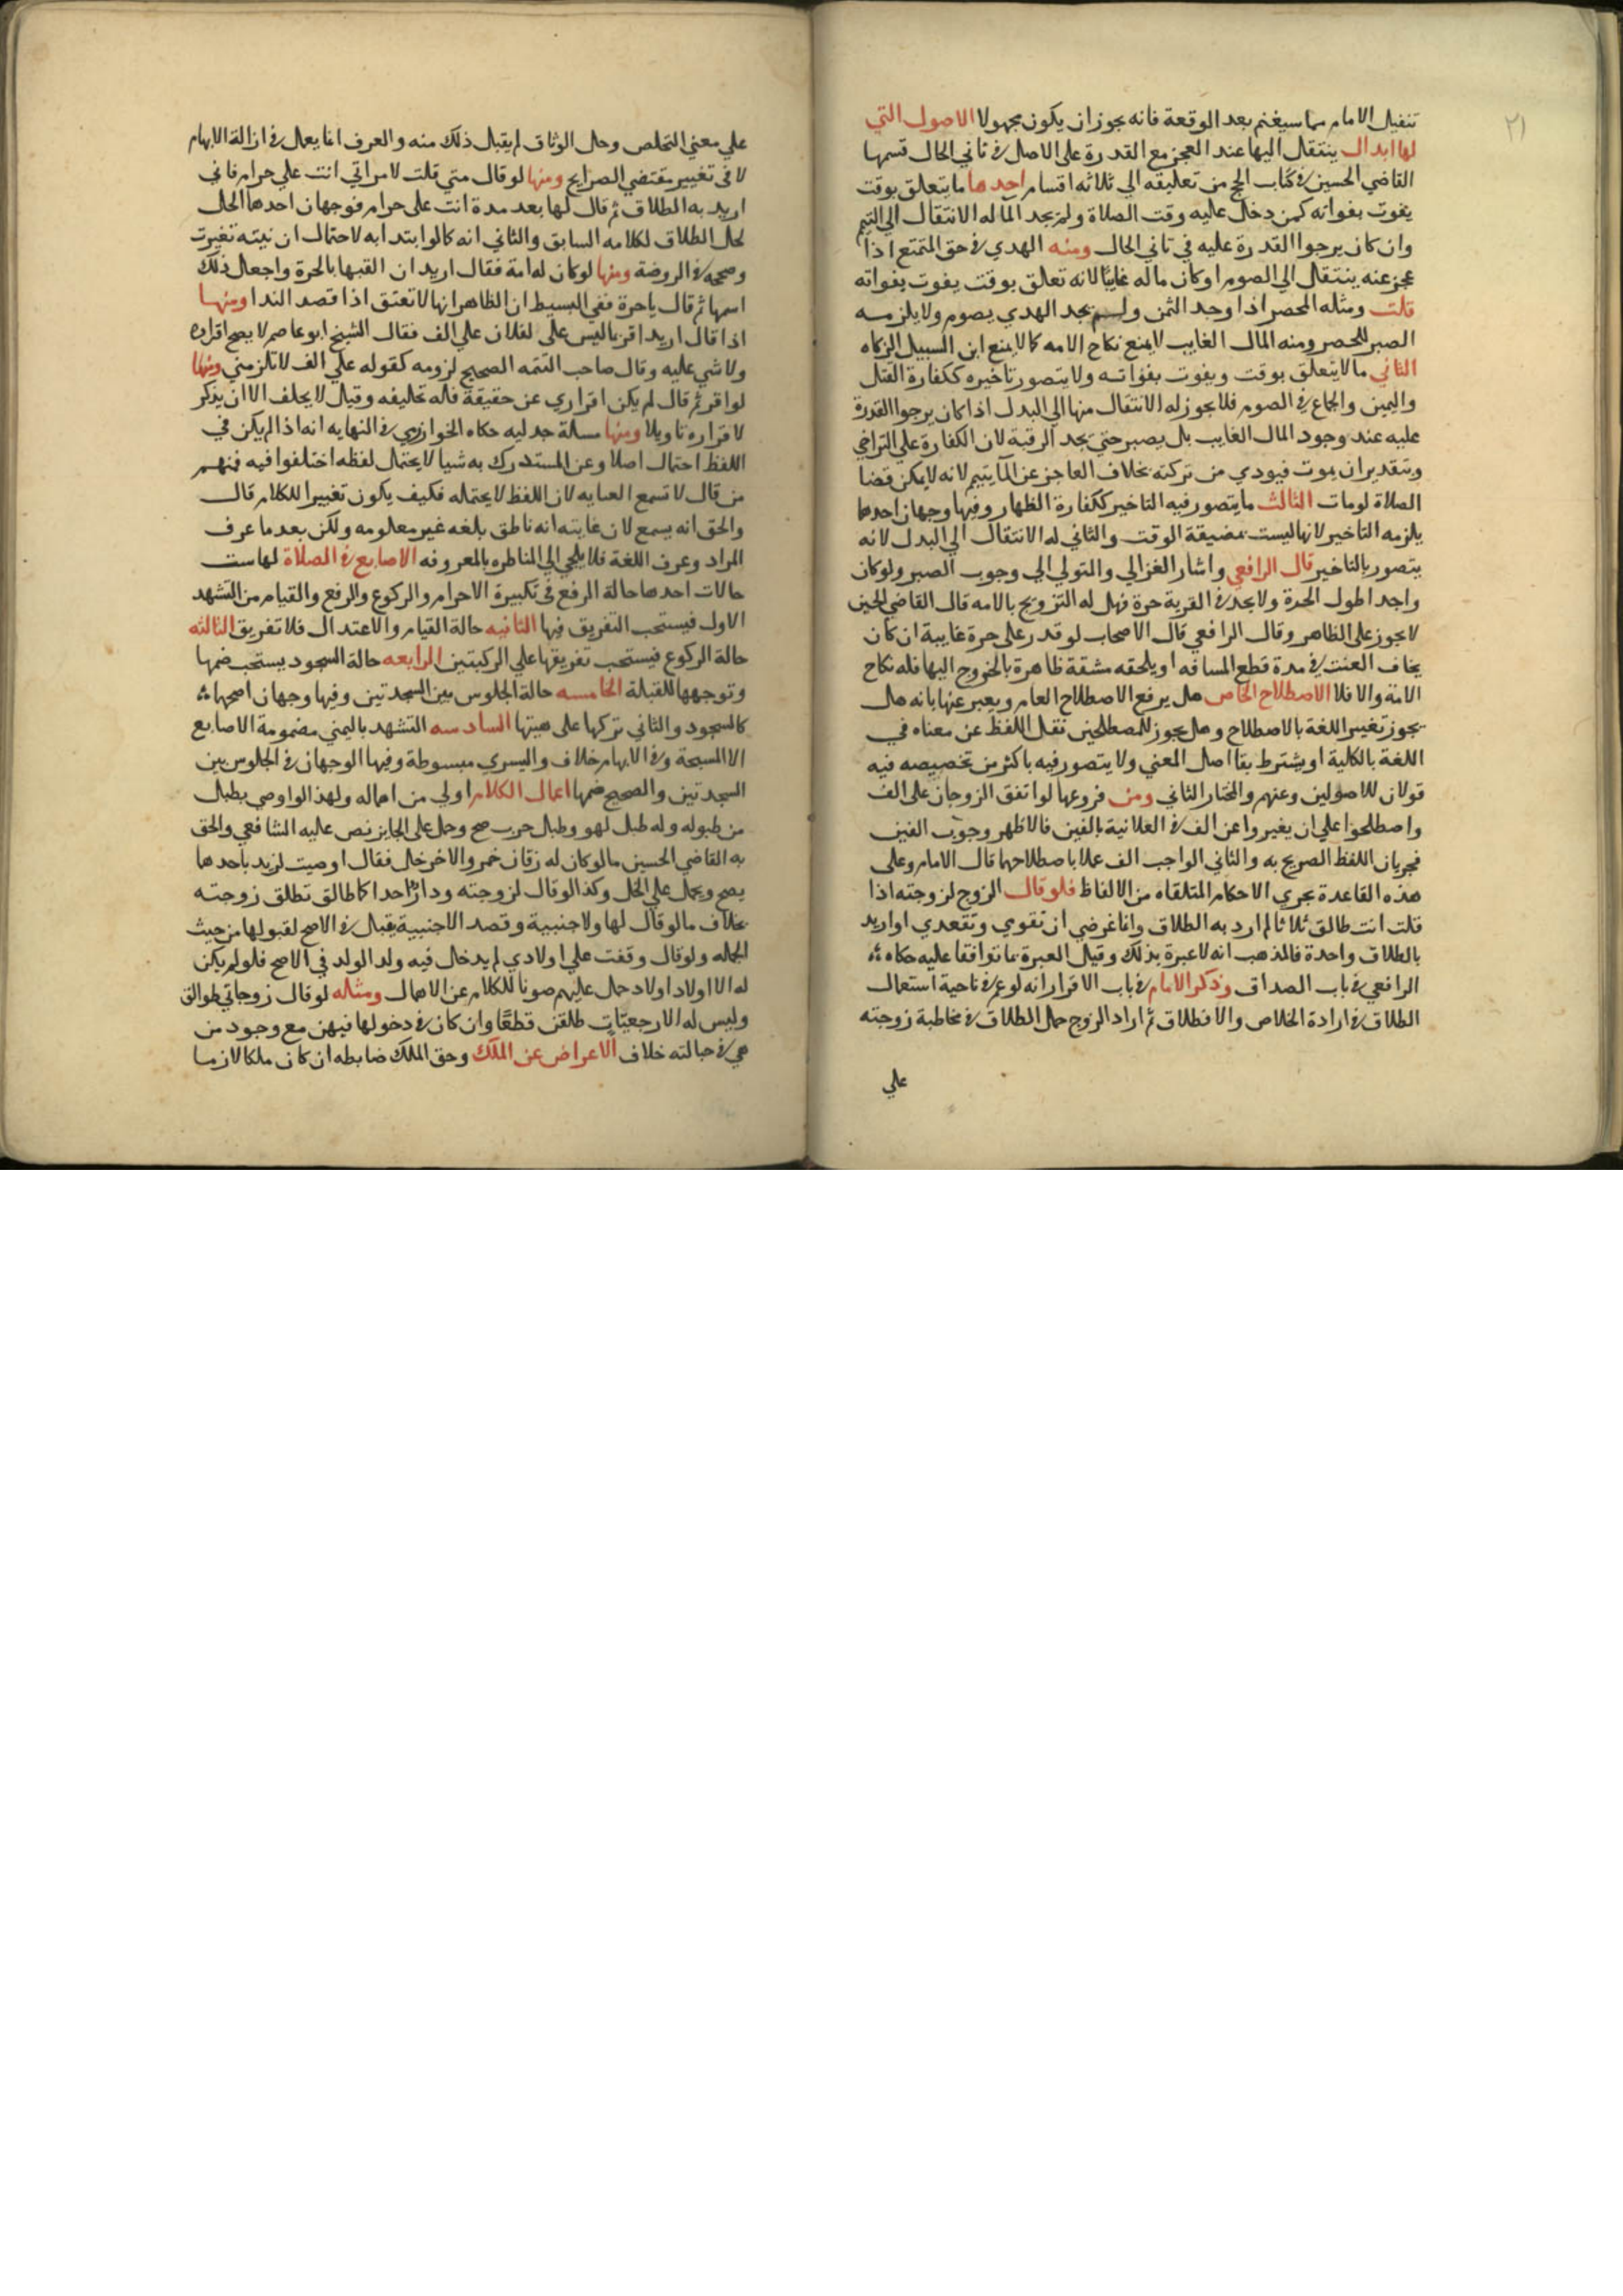 ٢١
تنفيل الامام مما سيغنم بعد الوقعة فانه يجوز ان يكون مجهولا الاصول التي
لها ابدال ينتقل اليها عند العجز مع القدرة على الاصل في ثاني الحال قسمها
القاضي الحسين في كتاب الحج من تعليقه الي ثلاثه اقسام احدها ما يتعلق بوقت
يفوت بفواته كمن دخل عليه وقت الصلاة ولم يجد الما له الانتقال الي التيمم
وان كان يرجوا القدرة عليه في ثاني الحال ومنه الهدي في حق المتمتع اذا
عجز عنه ينتقل الي الصوم او كان ماله غايبا لانه تعلق بوقت يفوت بفواته
قلت ومثله المحصر اذا وجد الثمن ولم يجد الهدي يصوم ولا يلزمه
الصبر للحصر ومنه المال الغايب لا يمنع نكاح الامه كالا يمنع ابن السبيل الزكاه
الثاني ما لا يتعلق بوقت ويفوت بفواته ولا يتصور تاخيره ككفارة القتل
واليمين والجماع في الصوم فلا يجوز له الانتقال منها الي البدل اذا كان يرجوا القدرة
عليه عند وجود المال الغايب بل يصبر حتي يجد الرقبة لان الكفارة علي التراخي
وبتقدير ان يموت فيودي من تركته بخلاف العاجز عن الما يتيمم لانه لا يمكن قضا
الصلاة لو مات الثالث ما يتصور فيه التاخير ككفارة الظهار وفيها وجهان احدها
يلزمه التاخير لانها ليست بمضيقة الوقت والثاني له الانتقال الي البدل لانه
يتصور بالتاخير قال الرافعي واشار الغزالي والمتولي الي وجوب الصبر ولو كان
واجدا طول الحرة ولا يجد في القرية حرة فهل له التزويج بالامه قال القاضي الحسين
لا يجوز على الظاهر وقال الرافعي قال الاصحاب لو قدر على حرة غايبة ان كان
يخاف العنت في مدة قطع المسافه او يلحقه مشقة ظاهرة بالخروج اليها فله نكاح
الامة والا فلا الاصطلاح الخاص هل يرفع الاصطلاح العام ويعبر عنها بانه هل
يجوز تغيير اللغة بالاصطلاح وهل يجوز للمصطلحين نقل اللفظ عن معناه في
اللغة بالكلية او يشترط بقا اصل المعني ولا يتصور فيه باكثر من تخصيصه فيه
قولان للاصولين وعنهم والمختار الثاني ومن فروعها لو اتفق الزوجان على الف
واصطلحوا علي ان يغيروا عن الف في العلانية بالفين فالاظهر وجوب الفين
لجريان اللفظ الصريح به والثاني الواجب الف عملا باصطلاحهما قال الامام وعلى
هذه القاعدة تجري الاحكام المتلقاه من الالفاظ فلو قال الزوج لزوجته اذا
قلت انت طالق ثلاثا لم ارد به الطلاق وانما غرضي ان تقومي وتقعدي او اريد
بالطلاق واحدة فالمذهب انه لا عبرة بذلك وقيل العبرة بما توافقا عليه حكاه
الرافعي في باب الصداق وذكر الامام في باب الاقرار انه لو عم في ناحية استعمال
الطلاق في ارادة الخلاص والانطلاق ثم اراد الزوج حمل الطلاق في مخاطبة زوجته
علي
علي معني التخلص وحل الوثاق لم يقبل ذلك منه والعرف انما يعمل في ازالة الابهام
لا في تغيير مقتضي الصرايح ومنها لو قال متي قلت لامراتي انت علي حرام فاني
اريد به الطلاق ثم قال لها بعد مدة انت على حرام فوجهان احدهما الحمل
لحل الطلاق لكلامه السابق والثاني انه كما لو ابتدا به لاحتمال ان نيته تغيرت
وصححه في الروضة ومنها لو كان له امة فقال اريد ان القبها بالحرة واجعل ذلك
اسمها ثم قال يا حرة ففي البسيط ان الظاهر انها لا تعتق اذا قصد الندا ومنها
اذا قال اريد اقر بما ليس على لفلان علي الف فقال الشيخ ابو عاصم لا يصح اقراره
ولا شي عليه وقال صاحب التتمه الصحيح لزومه كقوله علي الف لا تلزمني ومنها
لو اقر ثم قال لم يكن اقراري عن حقيقة فله تحليفه وقيل لا يحلف الا ان يذكر
لاقراره تاويلا ومنها مسلة جدليه حكاه الخوارزمي في النهايه انه اذا لم يكن في
اللفظ احتمال اصلا وعن المستدرك به شيا لا يحتمل لفظه اختلفوا فيه فمنهم
من قال لا تسمع العنايه لان اللفظ لا يحتمله فكيف يكون تغييرا للكلام قال
والحق انه يسمع لان غايته انه ناطق بلغه غير معلومه ولكن بعد ما عرف
المراد وعرف اللغة فلا يلجي الي المناظره بالمعروفه الاصابع في الصلاة لها ست
حالات احدها حالة الرفع في تكبيرة الاحرام والركوع والرفع والقيام من التشهد
الاول فيستحب التفريق فيها الثانيه حالة القيام والاعتدال فلا تفريق الثالثه
حالة الركوع فيستحب تفريقها علي الركبتين الرابعه حالة السجود يستحب ضمها
وتوجهها للقبلة الخامسه حالة الجلوس بين السجدتين وفيها وجهان اصحهما
كالسجود والثاني تركها على هيتها السادسه التشهد باليمني مضمومة الاصابع
الا المسبحة وفي الابهام خلاف واليسري مبسوطة وفيها الوجهان في الجلوس بين
السجدتين والصحيح ضمها اعمال الكلام اولي من اهماله ولهذا لو اوصي بطبل
من طبوله وله طبل لهو وطبل حرب صح وحمل على الجايز نص عليه الشافعي والحق
به القاضي الحسين ما لو كان له زقان خمر والاخر خل فقال اوصيت لزيد باحدها
يصح ويحمل علي الخل وكذا لو قال لزوجته ودار احداكما طالق تطلق زوجته
بخلاف ما لو قال لها ولاجنبية وقصد الاجنبية يقبل في الاصح لقبولها من حيث
الجمله ولو قال وقفت علي اولادي لم يدخل فيه ولد الولد في الاصح فلو لم يكن
له الا اولاد اولاد حمل عليهم صونا للكلام عن الاهمال ومثله لو قال زوجاتي طوالق
وليس له الا رجعيات طلقن قطعا وان كان في دخولها فيهن مع وجود من
هي في حبالته خلاف الاعراض عن الملك وحق الملك ضابطه ان كان ملكا لازما